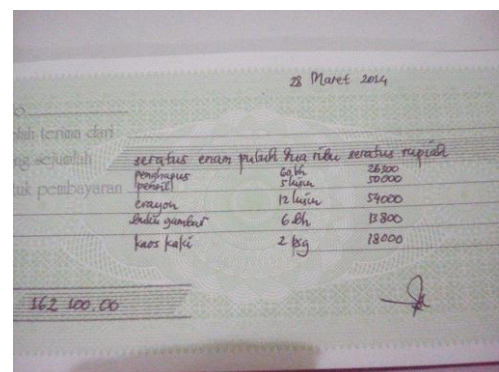 28 Maret 2014
lah terima dari
ng sejumlah seratus enam puluh dua ribu seratus rupiah
penghapus 60 bh 26300
tuk pembayaran pensil 5 lusin 50000
crayon 12 lusin 54000
buku gambar 6 bh 13800
kaos kaki 2 psg 18000
162 100.00